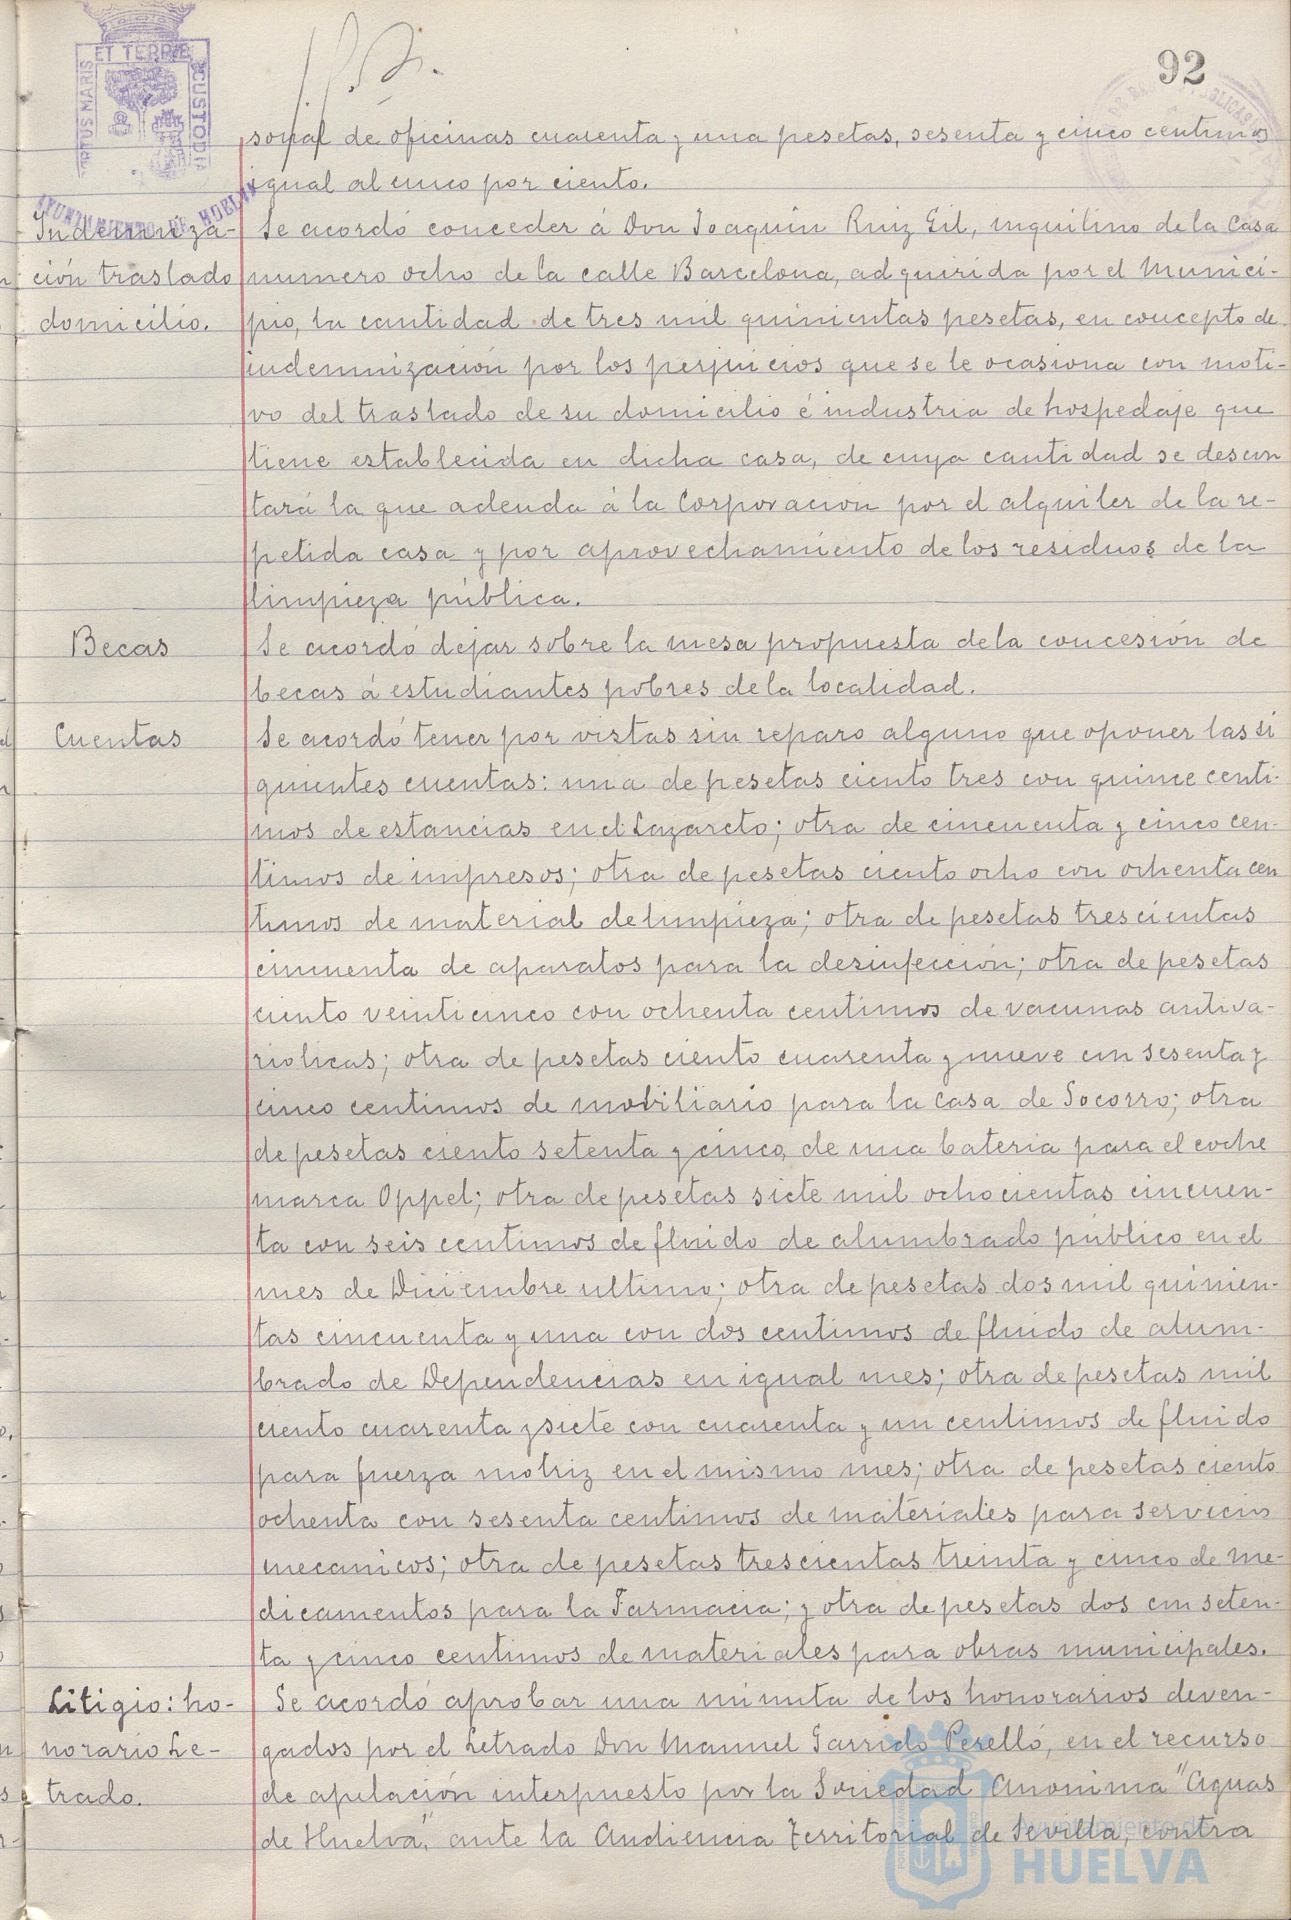 92
PORTUS MARIS ET TERRÆ CUSTODIA
AYUNTAMIENTO DE HUELVA
sonal de oficinas cuarenta y una pesetas, sesenta y cinco centimos
igual al cinco por ciento.
Indemniza-
ción traslado
domicilio.
Se acordó conceder á Don Joaquin Ruiz Gil, inquilino de la Casa
numero ocho de la calle Barcelona, adquirida por el Munici-
pio, la cantidad de tres mil quinientas pesetas, en concepto de
indemnización por los perjuicios que se le ocasiona con moti-
vo del traslado de su domicilio é industria de hospedaje que
tiene establecida en dicha casa, de cuya cantidad se descon
tará la que adeuda á la Corporación por el alquiler de la re-
petida casa y por aprovechamiento de los residuos de la
limpieza pública.
Becas
Se acordó dejar sobre la mesa propuesta de la concesión de
becas á estudiantes pobres de la localidad.
Cuentas
Se acordó tener por vistas sin reparo alguno que oponer las si
guientes cuentas: una de pesetas ciento tres con quince centi-
mos de estancias en el Lazareto; otra de cincuenta y cinco cen-
timos de impresos; otra de pesetas ciento ocho con ochenta cen
timos de material de limpieza; otra de pesetas trescientas
cincuenta de aparatos para la desinfección; otra de pesetas
ciento veinticinco con ochenta centimos de vacunas antiva-
riolicas; otra de pesetas ciento cuarenta y nueve con sesenta y
cinco centimos de mobiliario para la Casa de Socorro; otra
de pesetas ciento setenta y cinco, de una bateria para el coche
marca Oppel; otra de pesetas siete mil ochocientas cincuen-
ta con seis centimos de fluido de alumbrado público en el
mes de Diciembre ultimo; otra de pesetas dos mil quinien-
tas cincuenta y una con dos centimos de fluido de alum-
brado de Dependencias en igual mes; otra de pesetas mil
ciento cuarenta y siete con cuarenta y un centimos de fluido
para fuerza motriz en el mismo mes; otra de pesetas ciento
ochenta con sesenta centimos de materiales para servicios
mecanicos; otra de pesetas trescientas treinta y cinco de me-
dicamentos para la Farmacia; y otra de pesetas dos con seten-
ta y cinco centimos de materiales para obras municipales.
Litigio: ho-
norario Le-
trado.
Se acordó aprobar una minuta de los honorarios deven-
gados por el Letrado Don Manuel Garrido Perelló, en el recurso
de apelación interpuesto por la Sociedad Anonima "Aguas
de Huelva", ante la Audiencia Territorial de Sevilla, contra
Ayuntamiento de
HUELVA